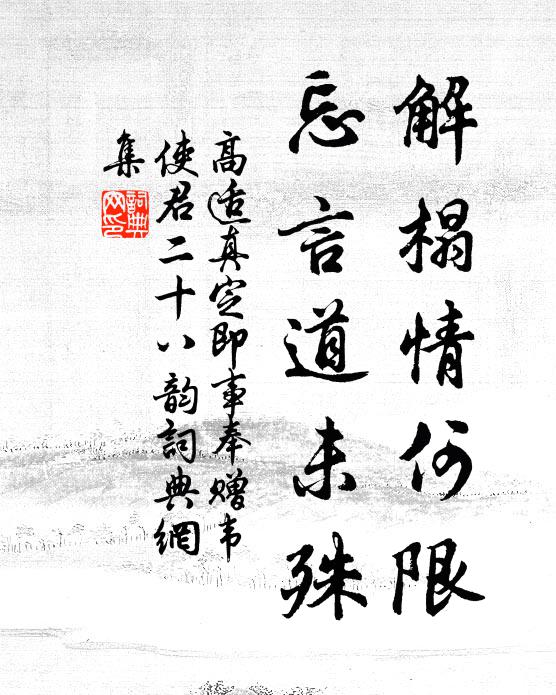 解榻情何限
忘言道未殊
高适真定即事奉赠韦
使君二十八韵詞典網
集
詞典
网印